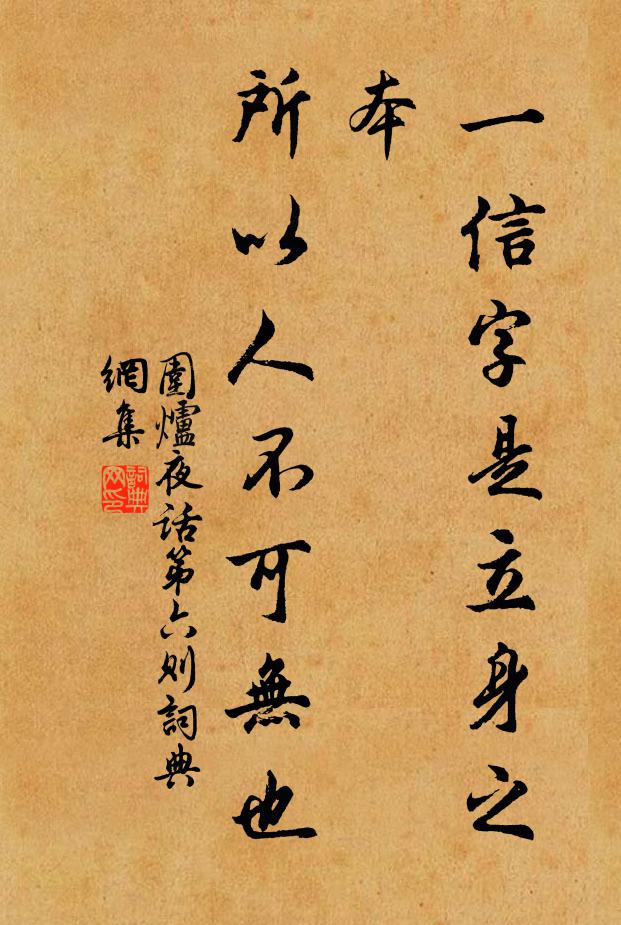 一信字是立身之
本
所以人不可無也
圍爐夜话第六则詞典
網集
詞典
网印